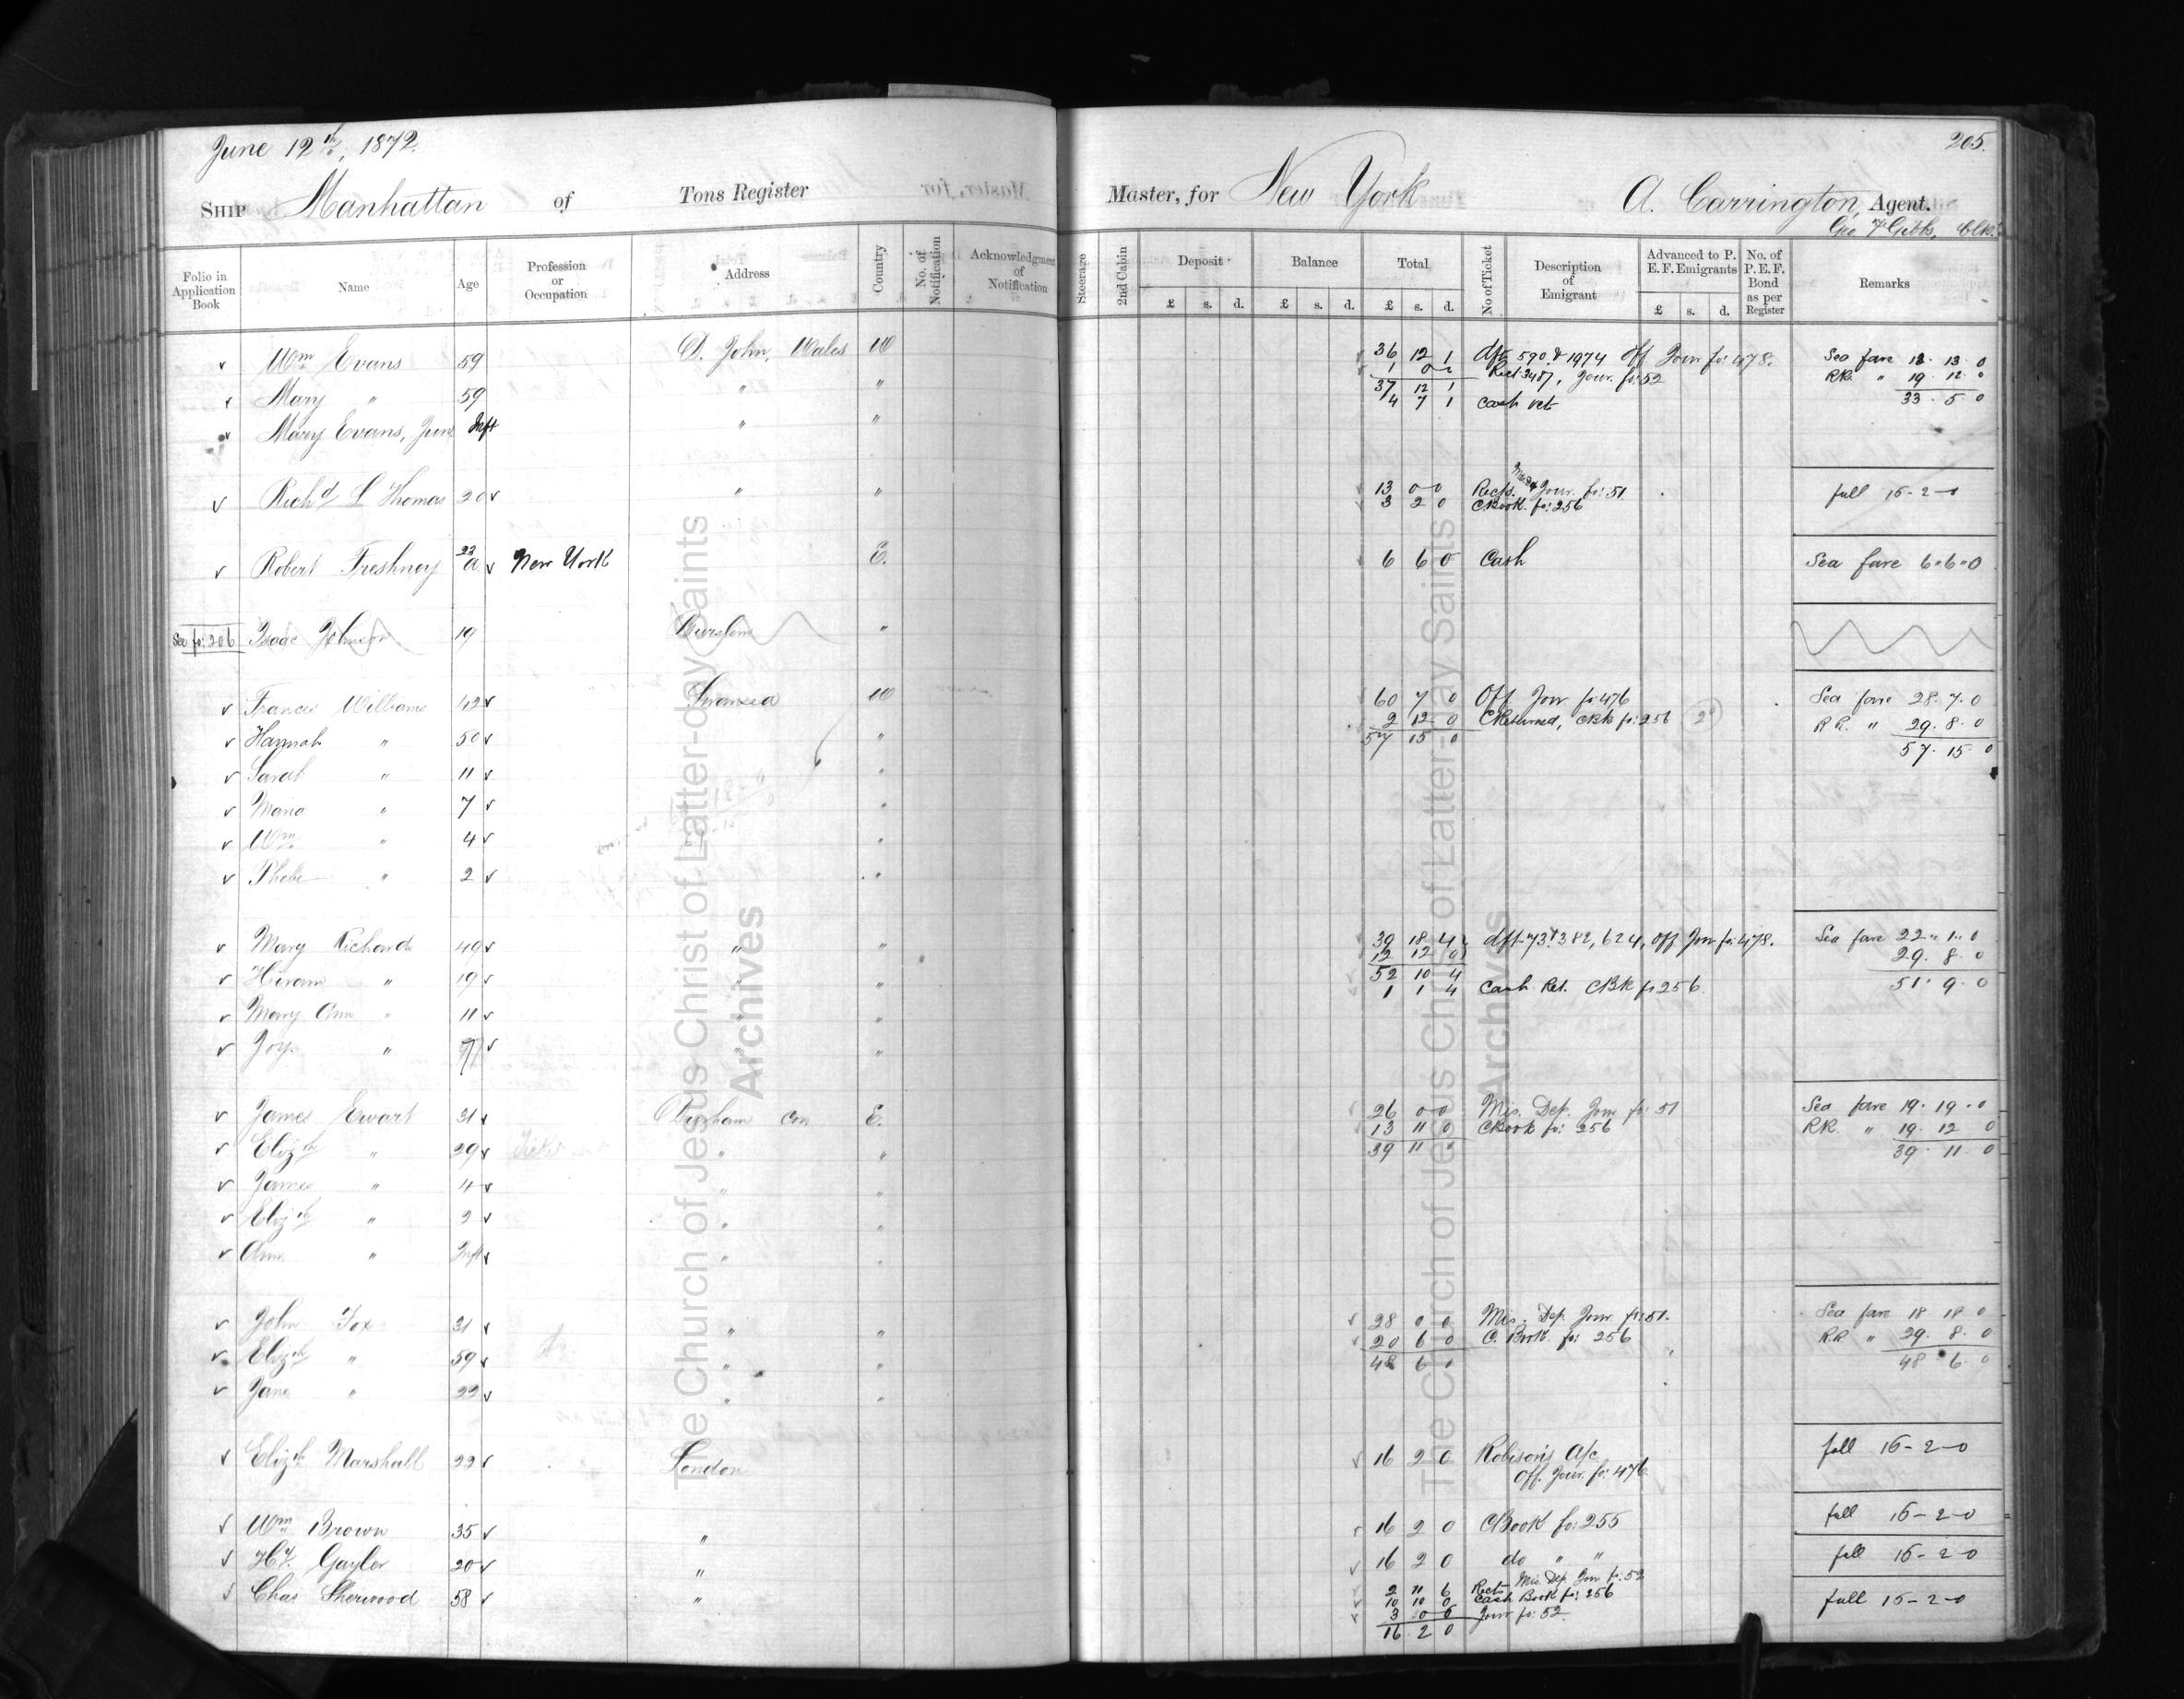 June 12th, 1872.
205.
SHIP Manhattan of Tons Register Master, for New York A. Carrington, Agent.
Geo. F Gibbs, Clk.
Folio in Application Book Name Age Profession or Occupation Address Country No. of Notification Acknowledgment of Notification Steerage 2nd Cabin Deposit Balance Total No of Ticket Description of Emigrant Advanced to P. E. F. Emigrants No. of P. E. F. Bond as per Register Remarks
£ s. d. £ s. d. £ s. d. £ s. d.
v Wm Evans 59 D. John, Wales W 36 12 1 dfts 590 & 1974 Off Jour fo: 478. Sea fare 13. 13. 0
1 0 0 Rect 3487, Jour. fo: 52 RR. " 19. 12. 0
v Mary " 59 " " 37 12 1
4 7 1 Cash ret 33. 5. 0
v Mary Evans, Junr Inft " "
v Richd L Thomas 20 v " " 13 0 0 Rects. Jour. fo: 51 full 16-2-0
3 2 0 CBook. fo: 256
v Robert Freshney 22 v New York E. 6 6 0 Cash Sea fare 6.6.0
See fo: 206 Isaac Johnson 19 Burslem "
v Frances Williams 42 v Swansea W 60 7 0 Off Jour fo: 476 Sea fare 28. 7. 0
v Hannah " 50 v " 2 12 0 CReturned, CBk fo: 256 RR. " 29. 8. 0
57 15 0 57. 15. 0
v Sarah " 11 v "
v Maria " 7 v "
v Wm " 4 v "
v Phebe " 2 v "
v Mary Richards 49 v " " 39 18 4 dft 73, 382, 624, off Jour fo: 478. Sea fare 22. 1. 0
12 12 0 29. 8. 0
v Hiram " 19 v " " 52 10 4
1 1 4 Cash Ret. CBk fo 256. 51. 9. 0
v Mary Ann " 11 v " "
v Joys " v " "
v James Ewart 31 v Durham Con E. 26 0 0 Mis. Dep. Jour fo: 51 Sea fare 19. 19. 0
13 11 0 CBook fo: 256 RR. " 19. 12. 0
v Elizth " 29 v " " 39 11 0 39. 11. 0
v James " 4 v " "
v Elizth " 2 v " "
v Ann " Inft v " "
v John Fox 31 v " " 28 0 0 Mis. Dep. Jour fo: 51. Sea fare 18 18 0
20 6 0 C. Book. fo: 256 RR " 29. 8. 0
v Elizth " 59 v " " 48 6 0 48. 6. 0
v Jane " 22 v " "
v Elizth Marshall 22 v London 16 2 0 Robison's A/c full 16-2-0
Off. Jour. fo: 476.
v Wm Brown 35 v " 16 2 0 CBook fo: 255 full 16-2-0
v Hy. Gayler 20 v " 16 2 0 do " " full 16-2-0
v Chas Sherwood 58 v " 2 11 6 Rects Mis. Dep. Jour fo: 52 full 16-2-0
10 10 0 Cash Book fo: 256
3 0 6 Jour fo: 52.
16 2 0
The Church of Jesus Christ of Latter-day Saints
Archives
The Church of Jesus Christ of Latter-day Saints
Archives